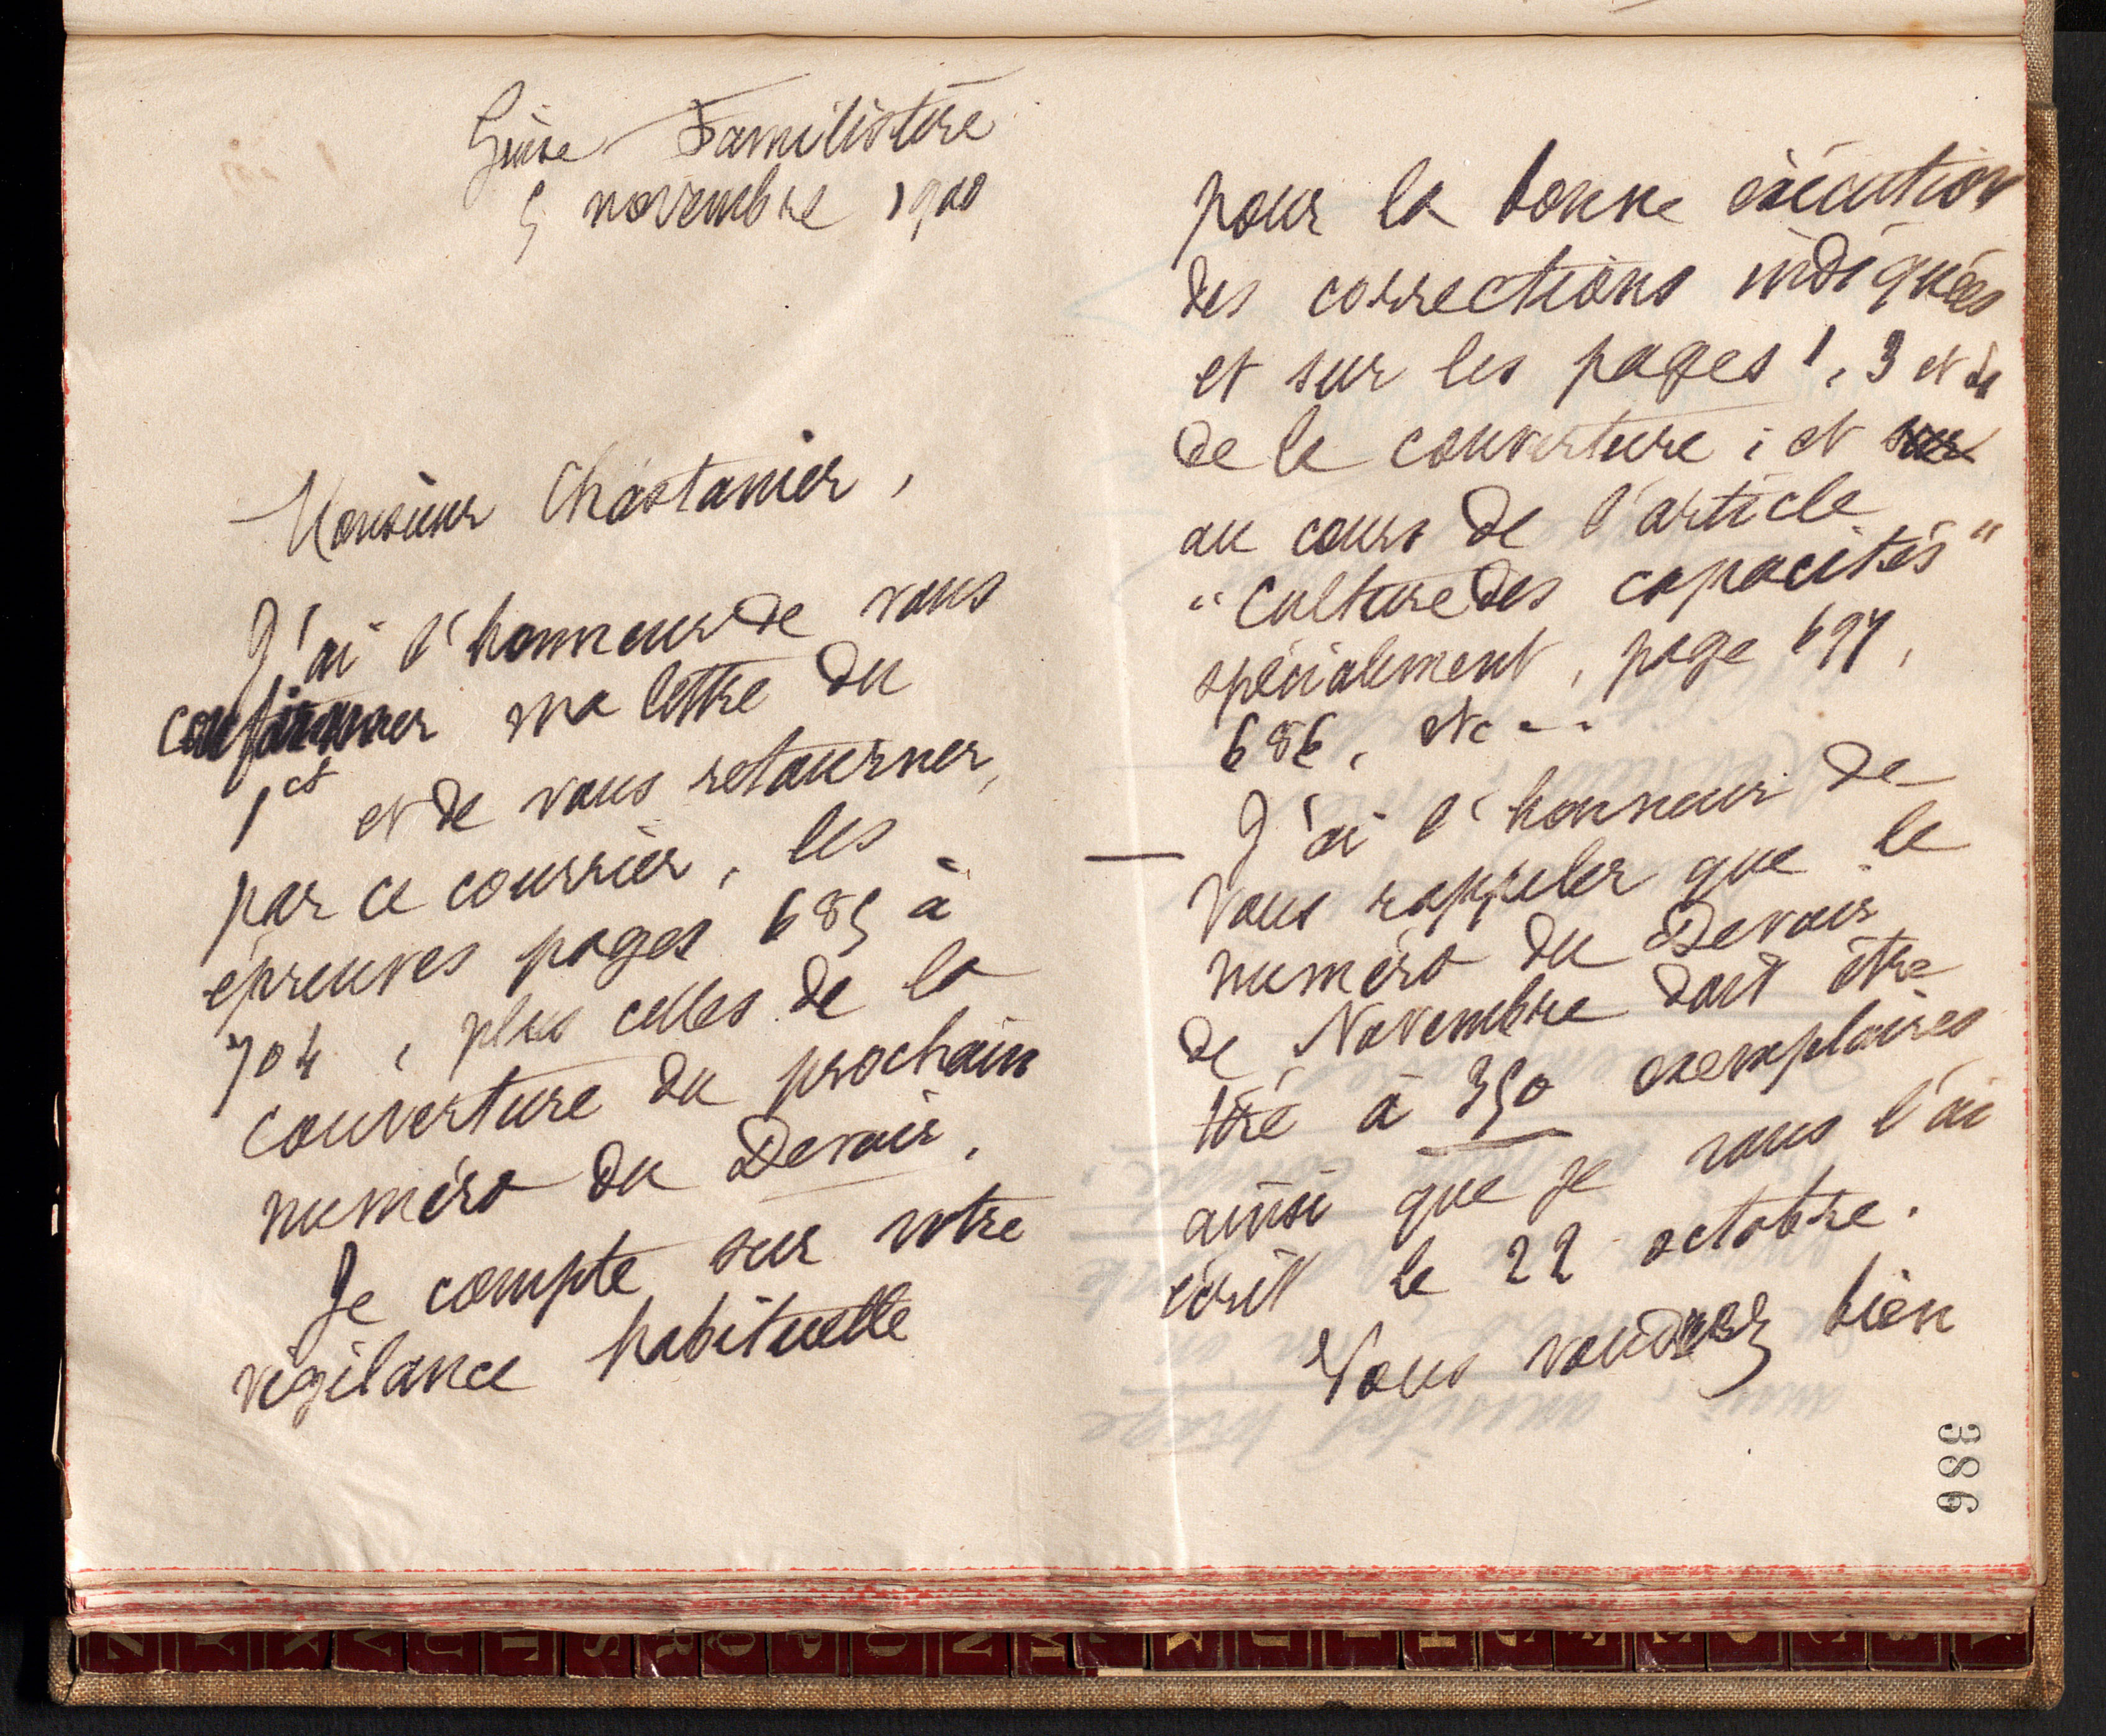 Guise Familistère
5 novembre 1900
Monsieur Chastanier,
J'ai l'honneur de vous
confirmer ma lettre du
1er et de vous retourner,
par ce courrier, les
épreuves pages 685 à
704, plus celles de la
couverture du prochain
numéro du Devoir.
Je compte sur votre
vigilance habituelle
pour la bonne exécution
des corrections indiquées
et sur les pages 1, 3 et
de la couverture ; et sur
au cours de l'article
"Culture des capacités"
spécialement, page 697,
686, etc--
— J'ai l'honneur de
vous rappeler que le
numéro du Devoir
de Novembre doit être
tiré à 350 exemplaires
ainsi que je vous l'ai
écrit le 22 octobre.
Vous voudrez bien
386
Z Y X V U T S R Q P O N M L K J I H G F E D C B A